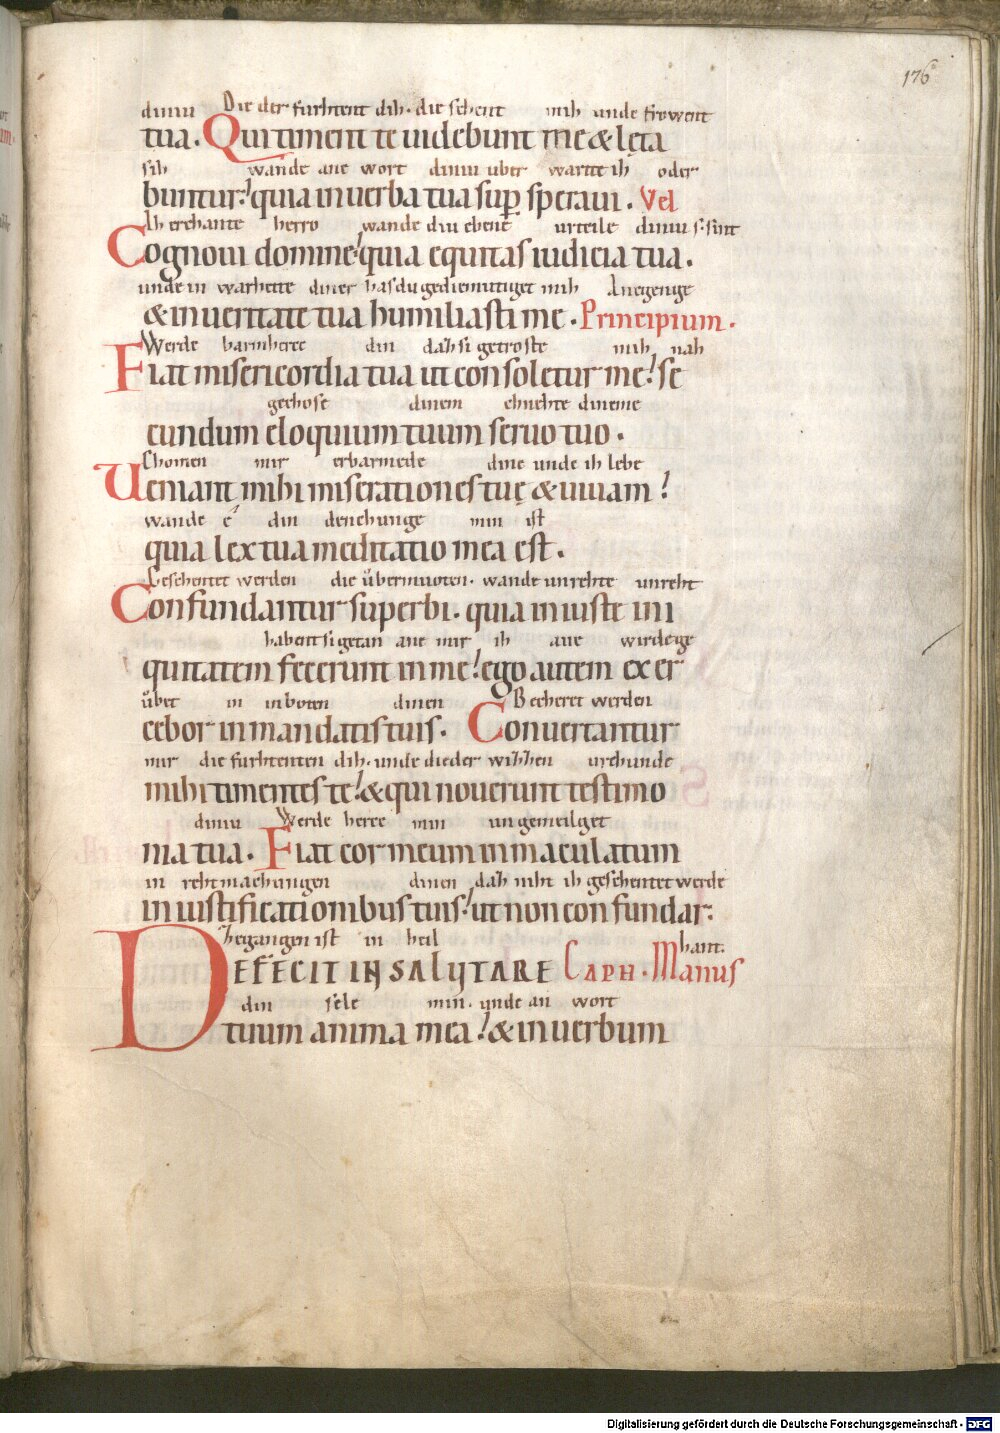 176
diniu Die der furhtent dih. die sehent mih unde frowent
tua. Qui timent te uidebunt me & lęta
sih wande ane wort diniu uber wartte ih oder
buntur. quia in uerba tua sup speraui. Vel
Ih erchante herro wande diu ebene urteile diniu s. sint
Cognoui domine quia equitas iudicia tua.
unde in warheite diner hasdu gediemuttiget mih Anegenge
& in ueritate tua humiliasti me. Principium.
Werde barmherce din dah si getroste mih nah
Fiat misericordia tua ut consoletur me! se
gechose dinem chnehte dineme
cundum eloquium tuum seruo tuo.
Chomen mir erbarmede dine unde ih lebe
Ueniant mihi miserationes tuę & uiuam!
wande e din denchunge min ist
quia lex tua meditatio mea est.
Geschentet werden die ůbermuoten. wande unrehte unreht
Confundantur superbi. quia iniuste ini
habent si getan ane mir ih aue wirde ge
quitatem fecerunt in me! ego autem exer
ůbet in inboten dinen Becheret werden
cebor in mandatis tuis. Conuertantur
mir die furhtenten dih. unde die der wihhen urchunde
mihi timentes te! & qui nouerunt testimo
diniu Werde herce min ungemeilget
nia tua. Fiat cor meum inmaculatum
in rehtmachungen dinen dah niht ih geschentet werde
in iustificationibus tuis! ut non confundar.
hegangen ist in heil hant.
DEFECIT IN SALUTARE CAPH. Manus
din sele min. unde an wort
tuum anima mea! & in uerbum
Digitalisierung gefördert durch die Deutsche Forschungsgemeinschaft - DFG